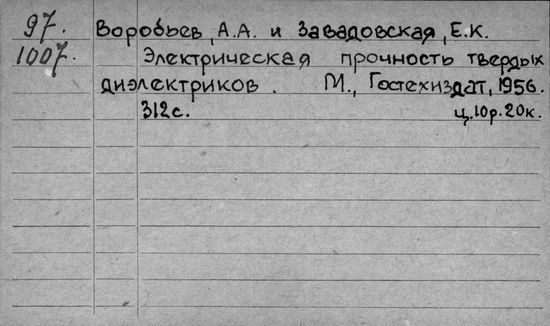 97. Воробьев, А.А. и Завадовская, Е.К.
1007. Электрическая прочность твердых
диэлектриков. М., Гостехиздат, 1956.
312с. ц.10р.20к.